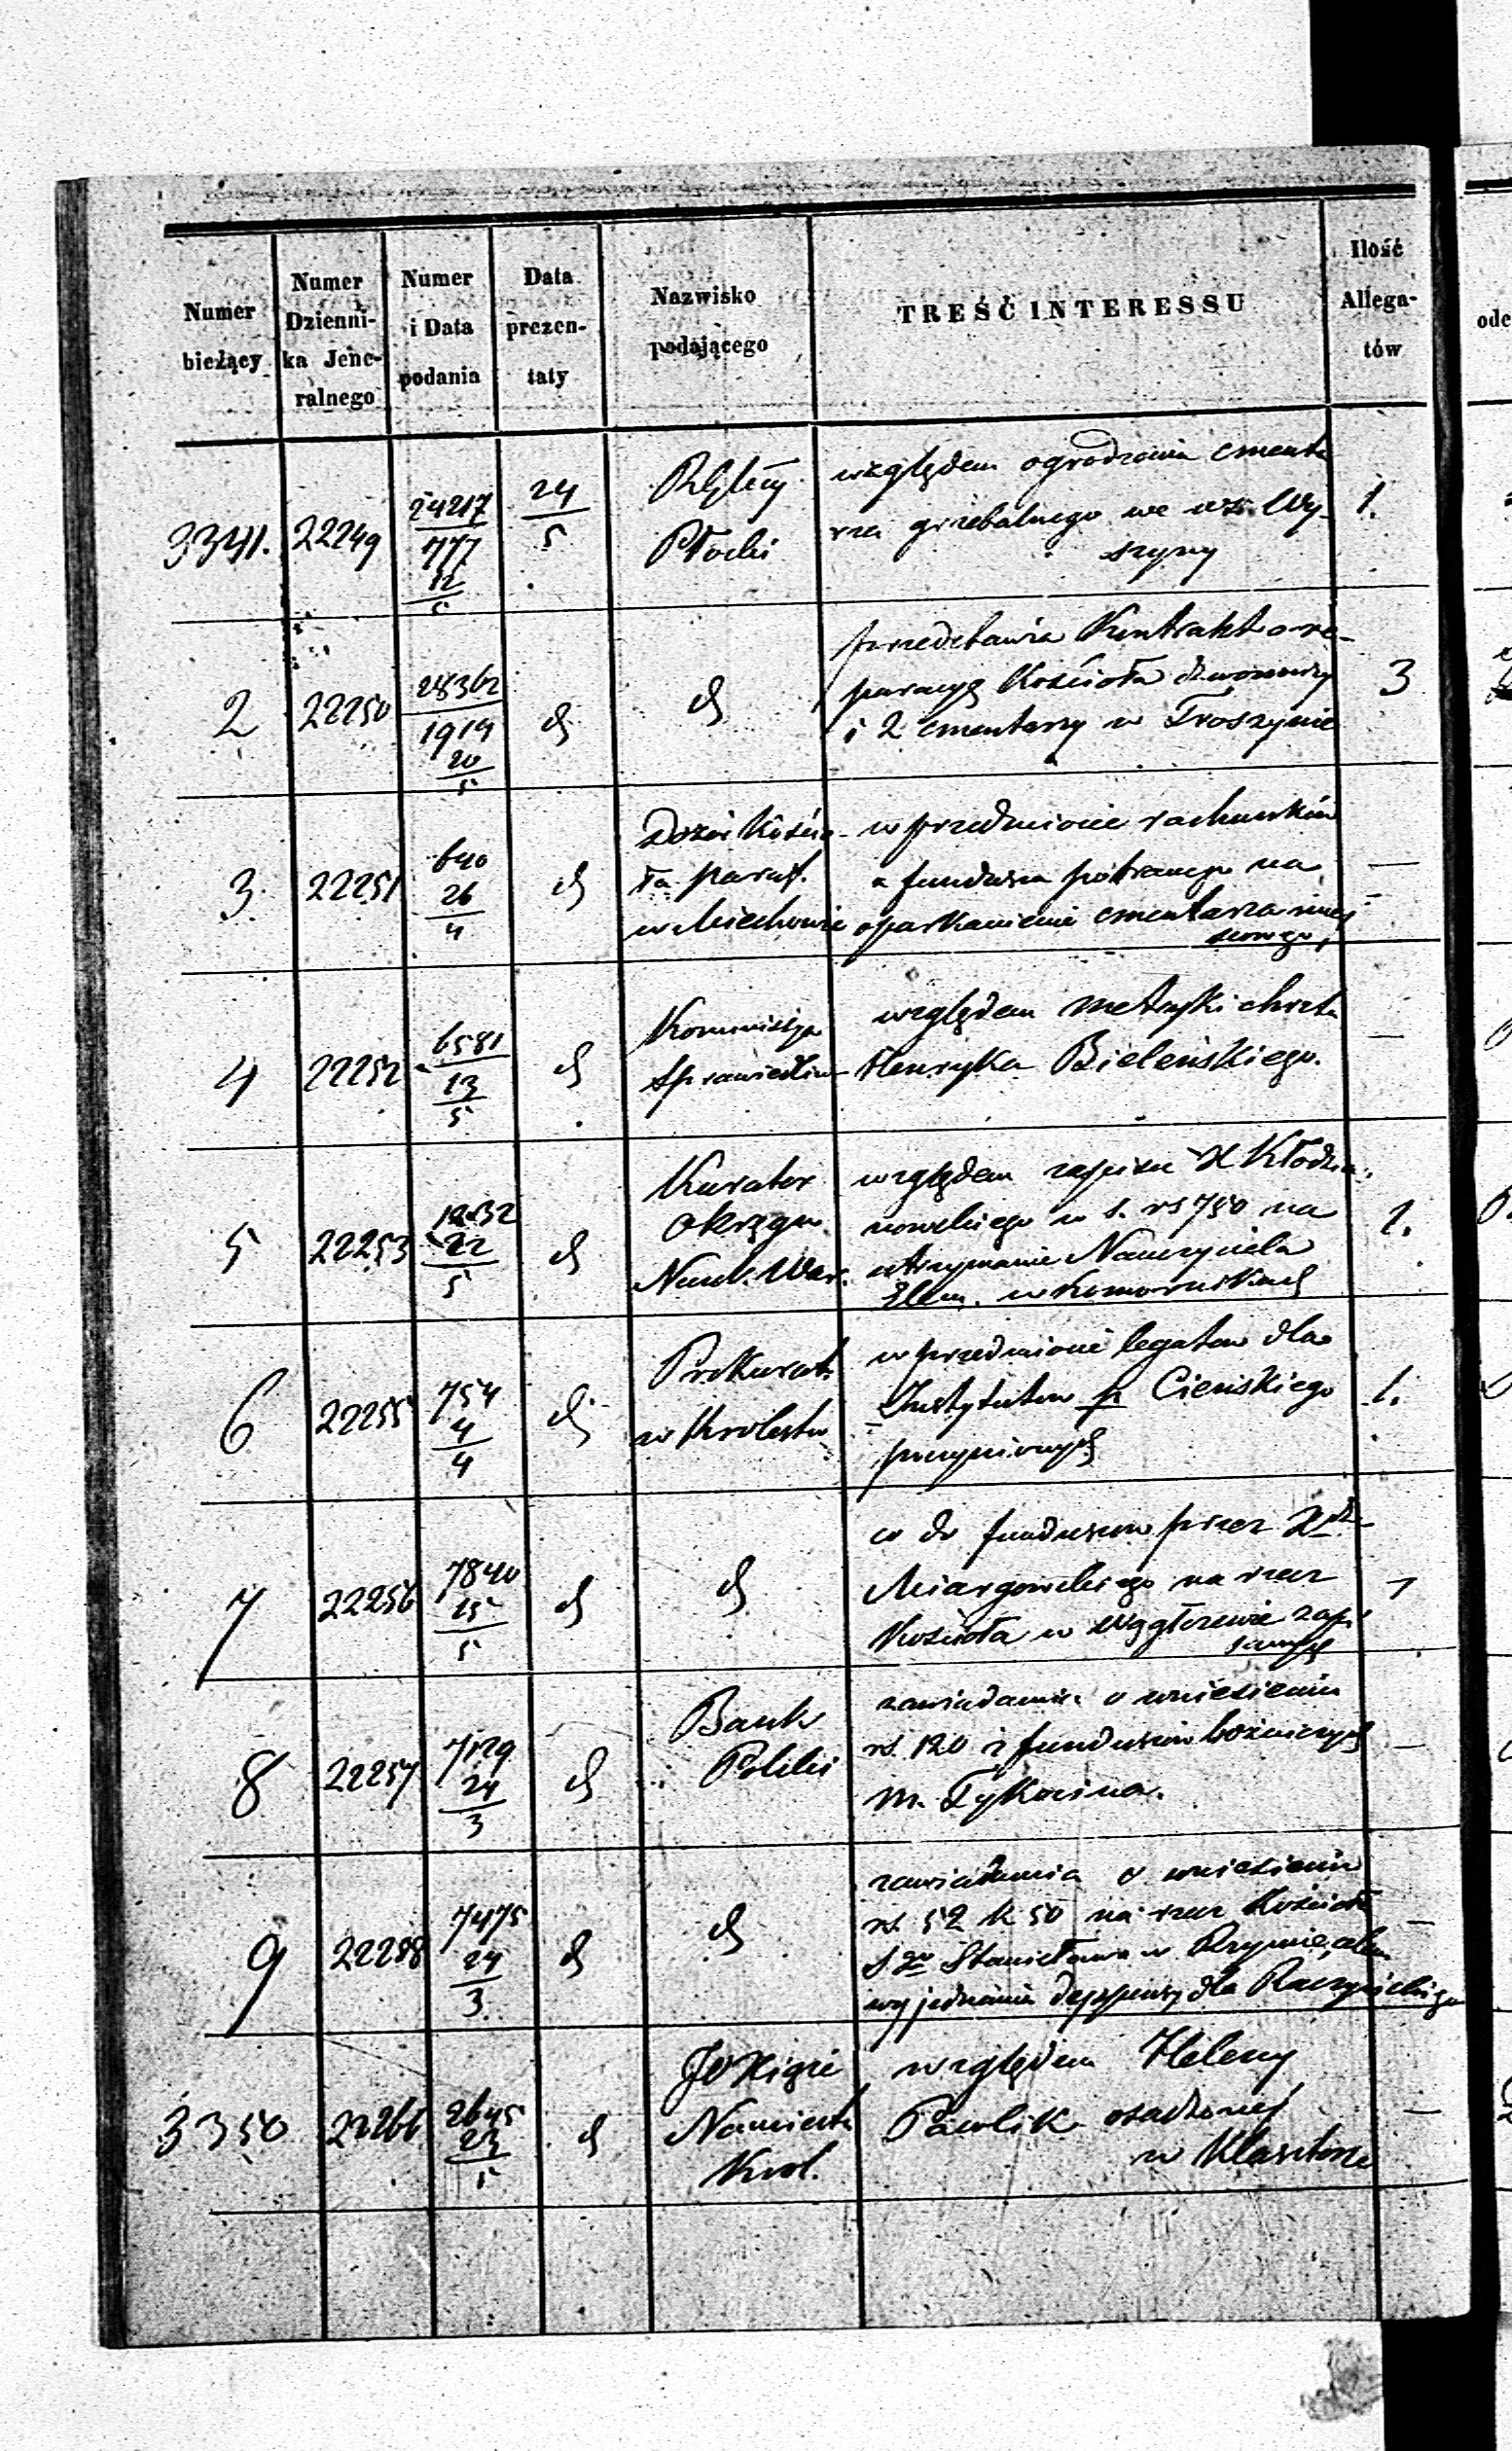 Numer bieżący
Numer Dzienni-
ka Jene-
ralnego
Numer
i Data
podania
Data
prezen-
taty
Nazwisko
podającego
TREŚĆ INTERESSU
Ilość
Allega-
tów
3341. 22249 24217 777 12/5 24/5
Płocki
względem ogrodzenia cmenta
rza grzebalnego we wsi Wy-
szyny
1.
2 22250 28362 1919 20/5 d
d
przedstawia Kontrakt o re-
paracyę Kościoła dzwonnicy
i 2 cmentarzy w Troszynie
3
3 22251 640 26/4 d
Dozór Kościo-
ła paraf.
w Miechowie
w przedmiocie rachunków
z funduszu pobranego na
oparkanienie cmentarza
—
4 22252 6581 13/5 d
Kommissja
Sprawiedliw
względem metryki chrztu
Henryka Bieleńskiego.
—
5 22253 1232 22/5 d
Kurator
Okręgu
Nauk. War.
względem zapisu X Kłodzia-
nowskiego w s. rs 750 na
utrzymanie Nauczyciela
Elem. w Komornikach
1.
6 22255 754 4/4 d
Prokurat.
w Królestw
w przedmiocie legatów dla
Instytutów p Cieńskiego
poczynionych
1.
7 22256 7840 15/5 d
d
co do funduszów przez Xdza
Miargowskiego na rzecz
Kościoła w zapi
sanych
8 22257 7129 24/3 d
Bank
Polski
zawiadamia o wniesieniu
rs. 120 z funduszów bożniczych
m. Tykocina.
—
9 22258 7475 24/3 d
d
zawiadamia o wniesieniu
rs. 52 k 50 na rzecz Kościoła
S go Stanisława w Rzymie, celem
wyjednania dyspensy dla Raczyńskiego
—
3350 22266 2645 23/5 d
JO Xiąże
Namiestn
Król.
względem Heleny
Pawlik osadzonej
w Klasztorze
—